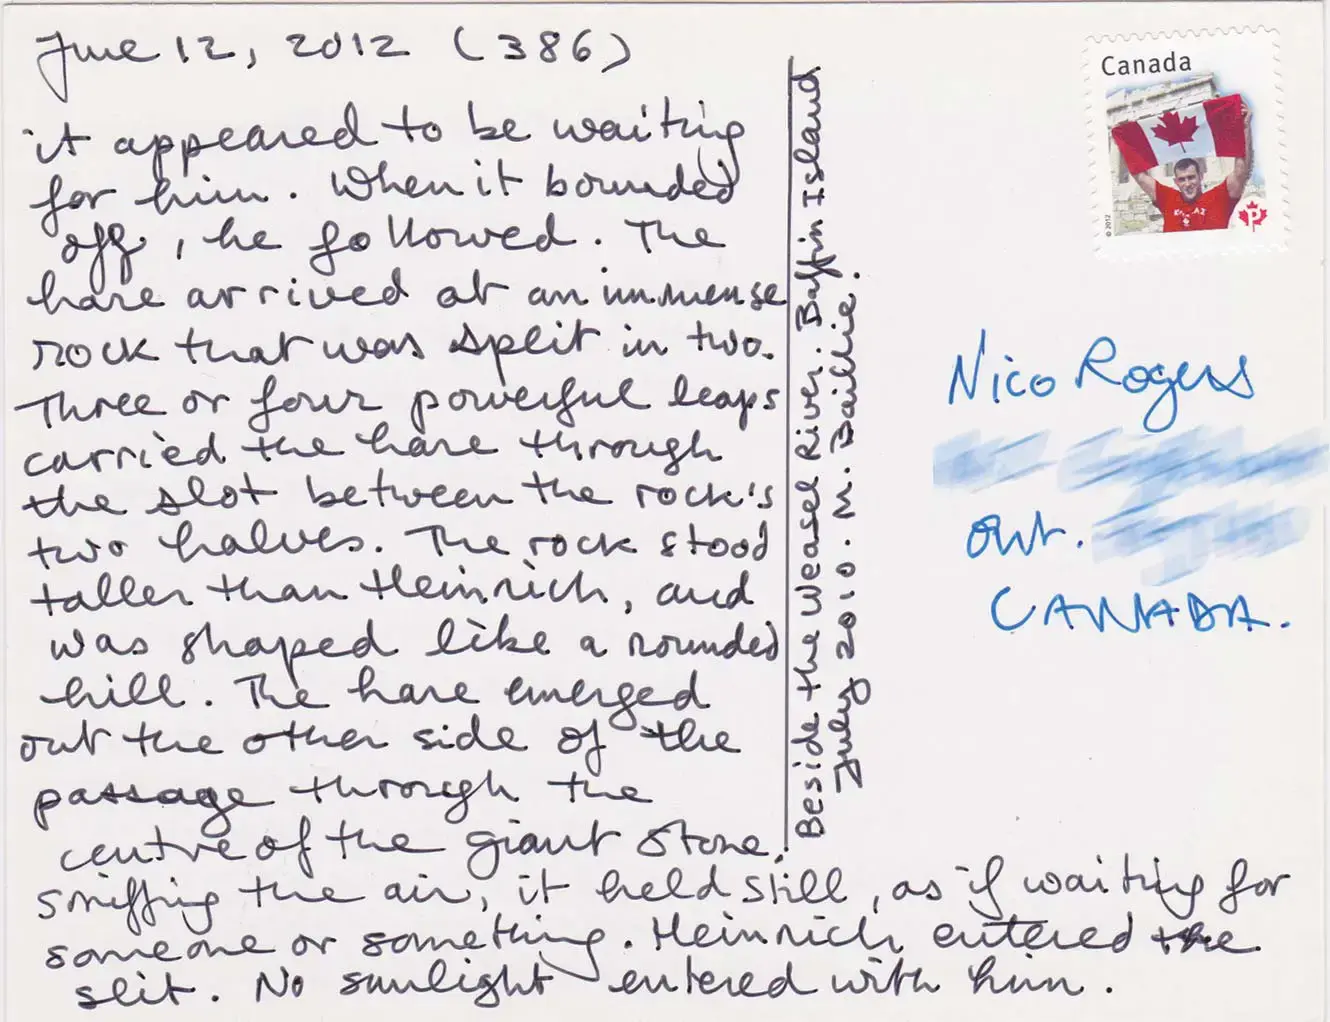 June 12, 2012 (386)
it appeared to be waiting
for him. When it bounded
off, he followed. The
hare arrived at an immense
rock that was split in two.
Three or four powerful leaps
carried the hare through
the slot between the rock's
two halves. The rock stood
taller than Heinrich, and
was shaped like a rounded
hill. The hare emerged
out the other side of the
passage through the
centre of the giant stone.
Sniffing the air, it held still, as if waiting for
someone or something. Heinrich entered the
slit. No sunlight entered with him.
Beside the Weasel River. Baffin Island
July 2010. M. Baillie.
Canada
© 2012
P
Nico Rogers
Ont.
CANADA.